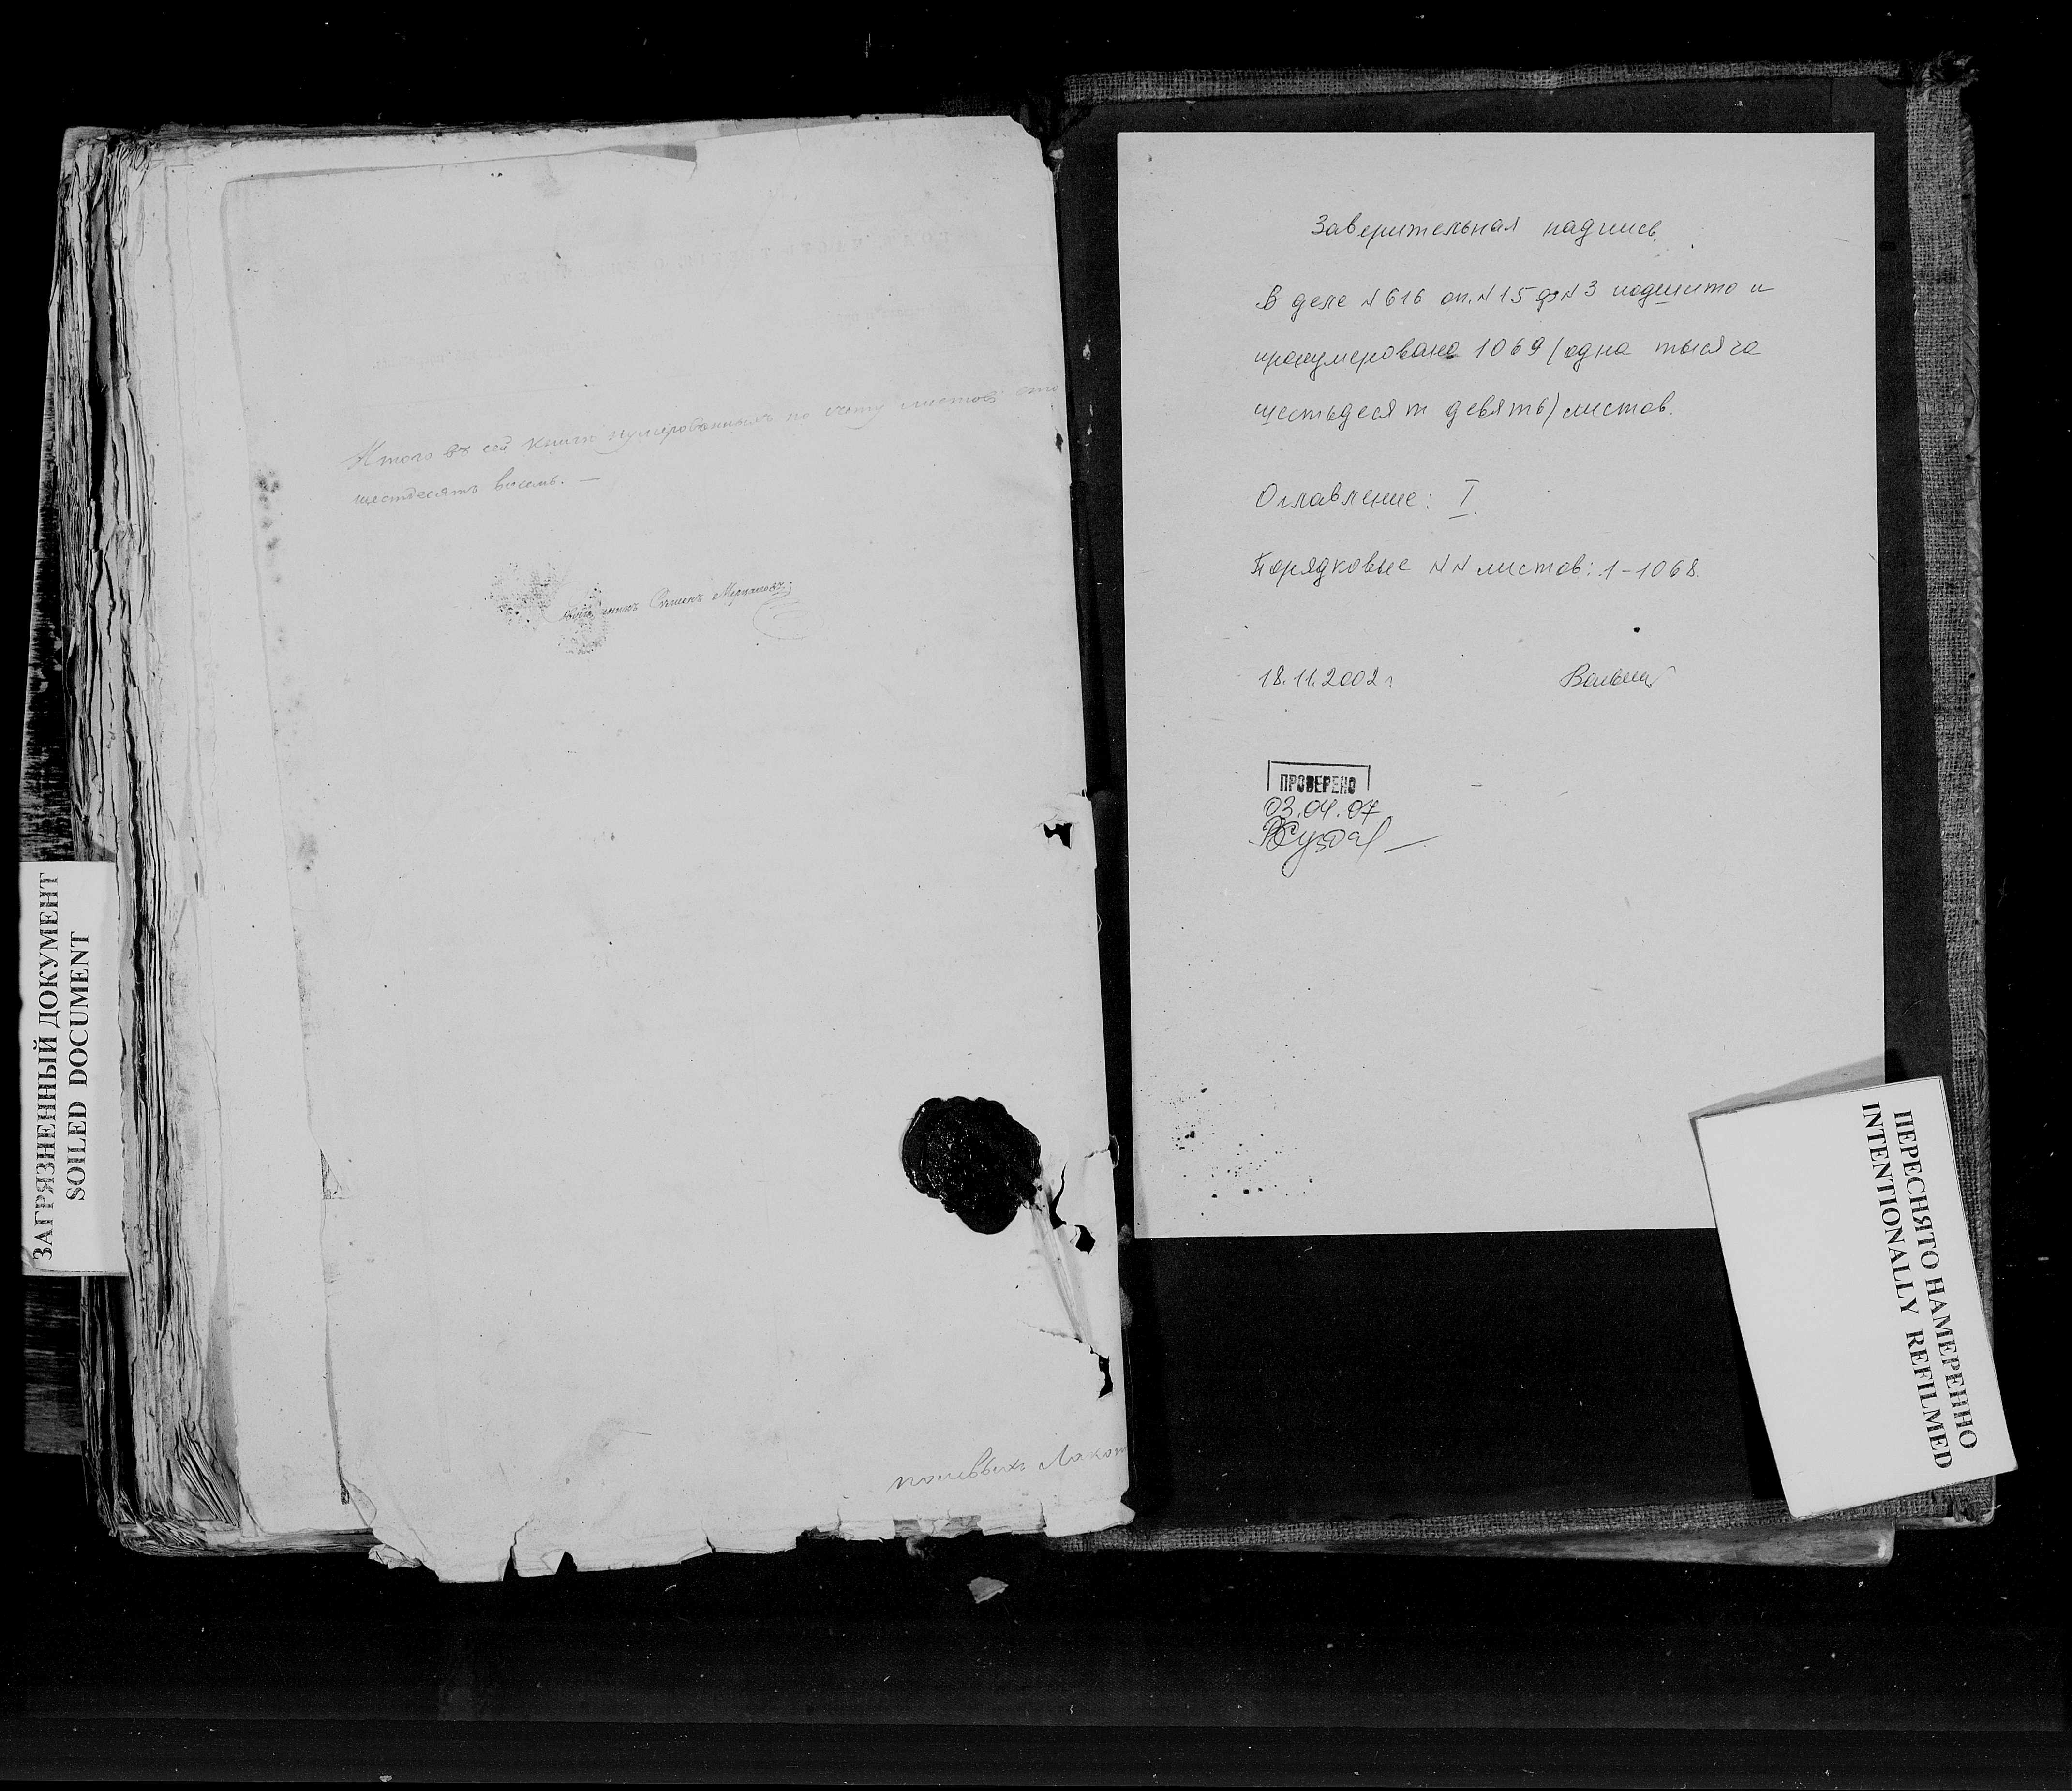 Итого въ сей книге нумерованныхъ по счету листовъ сто
шестдесятъ восемь. —
Священникъ Симеонъ
Заверительная надпись.
В деле № 616 оп. № 15 ф № 3 подшито и
пронумеровано 1069 (одна тысяча
шестьдесят девять) листов.
Оглавление: I.
Порядковые №№ листов: 1-1068.
18.11.2002 г.
ПРОВЕРЕНО
03.04.07
ЗАГРЯЗНЕННЫЙ ДОКУМЕНТ
SOILED DOCUMENT
ПЕРЕСНЯТО НАМЕРЕННО
INTENTIONALLY REFILMED